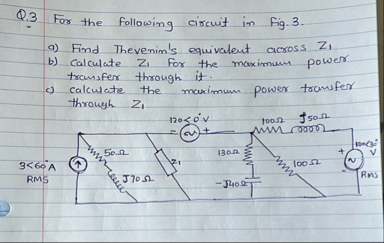 Q.3 For the following circuit in Fig. 3.
a) Find Thevenin's equivalent across Z1
b) Calculate Z1 for the maximum power
transfer through it.
c) calculate the maximum power transfer
through Z1
120<0° V
- +
100Ω J50Ω
50Ω
J70Ω
Z1
130Ω
-J40Ω
100Ω
3<60° A
RMS
+
-
V
RMS